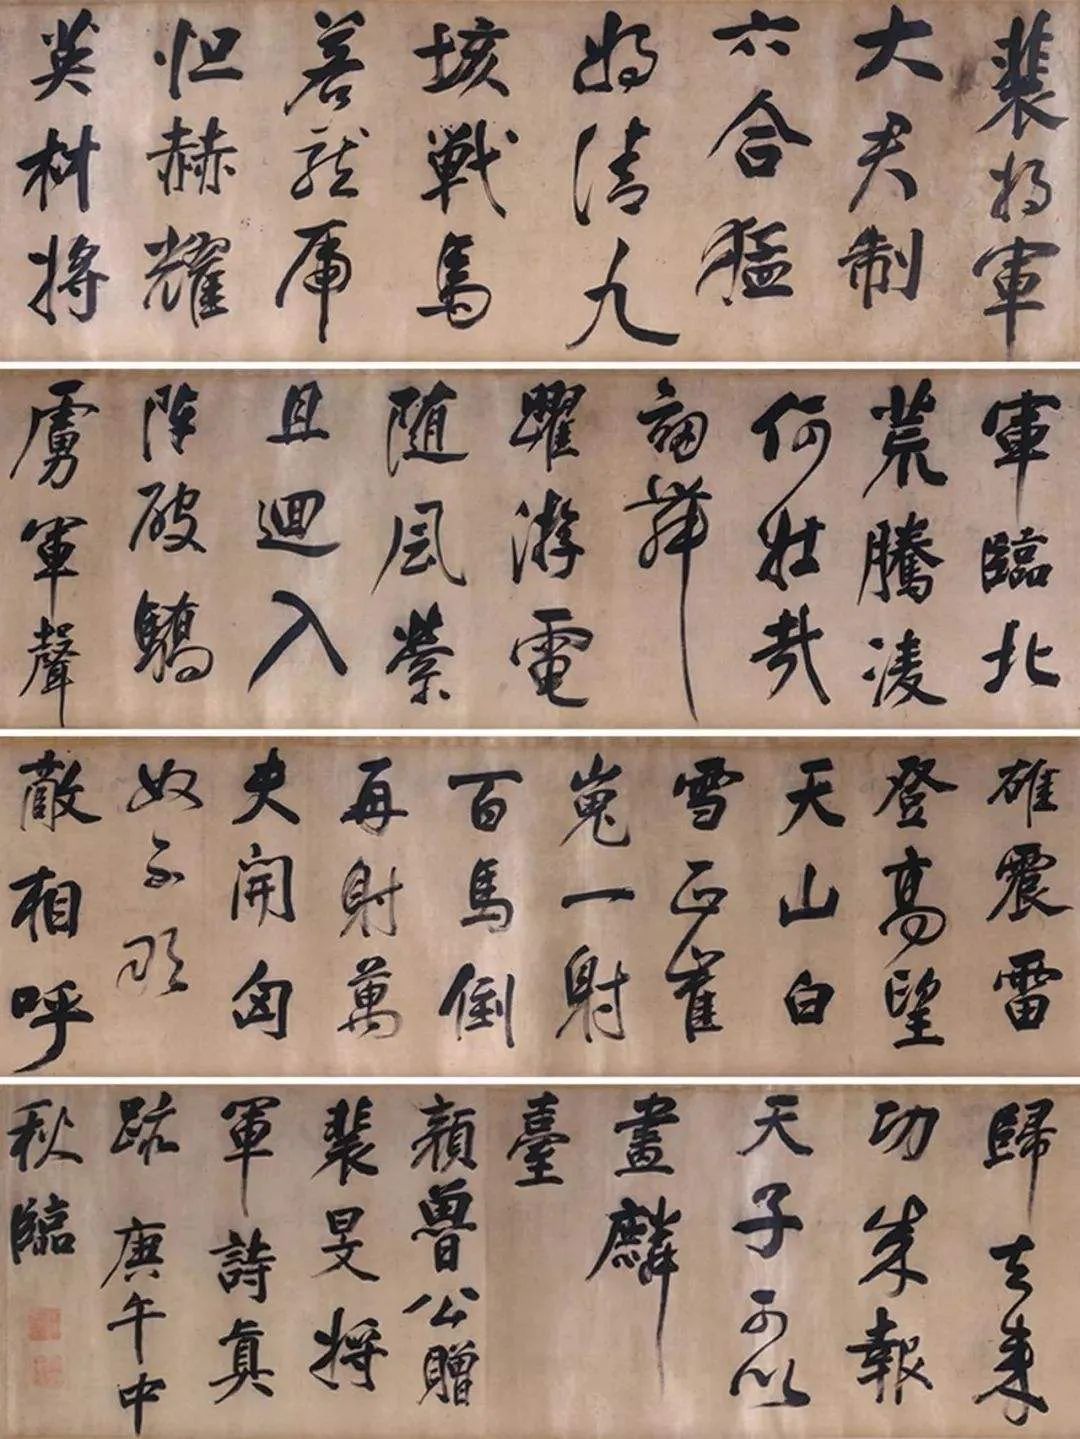 裴将軍
大君制
六合猛
将清九
垓戦馬
若龍虎
怛赫耀
英材將
軍臨北
荒騰凌
何壮哉
劒舞
躍游電
随風縈
且迴入
陣破驕
虜軍聲
雄震雷
登高望
天山白
雪正崔
嵬一射
百馬倒
再射萬
夫開匈
奴不敢
敵相呼
歸去来
功成報
天子可以
畫麟
臺
顏魯公贈
裴旻将
軍詩真
跡庚午中
秋臨